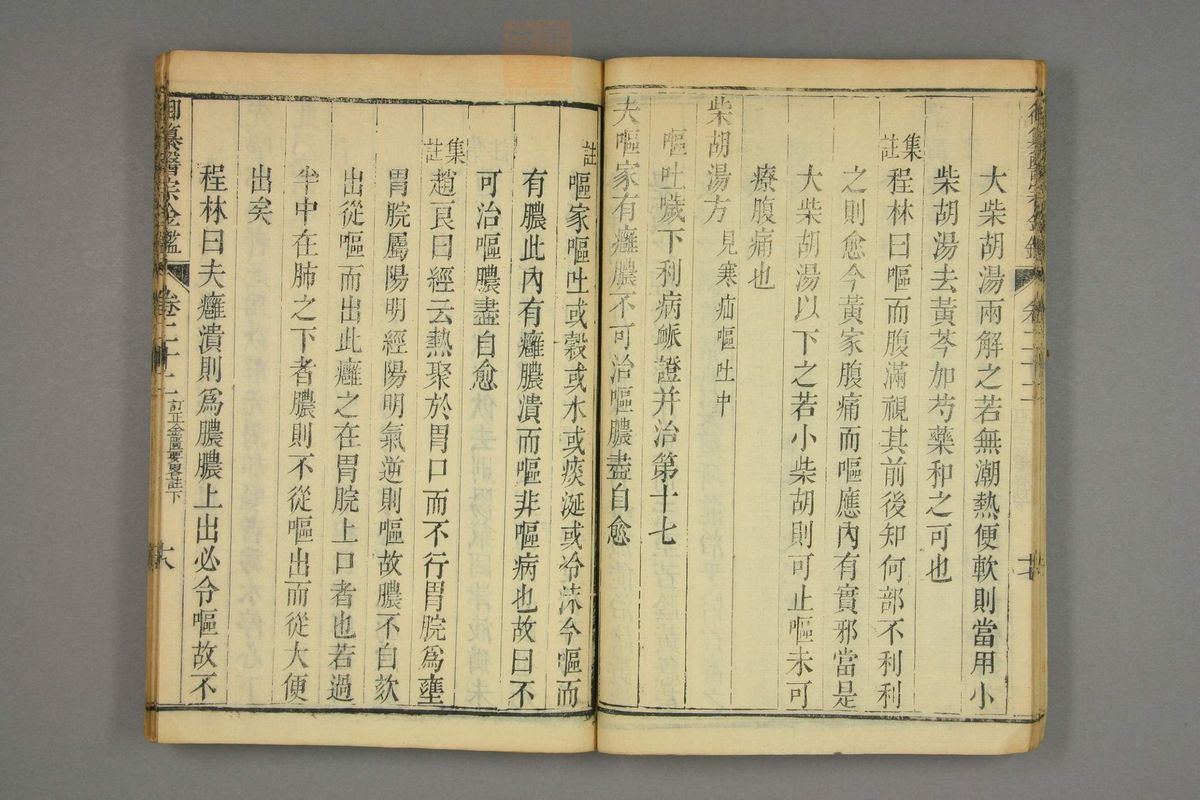 大柴胡湯兩解之若無潮熱便軟則當用小
柴胡湯去黃芩加芍藥和之可也
集註
程林曰嘔而腹滿視其前後知何部不利利
之則愈今黃家腹痛而嘔應內有實邪當是
大柴胡湯以下之若小柴胡則可止嘔未可
療腹痛也
柴胡湯方 見寒疝嘔吐中
嘔吐噦下利病䘑證并治第十七
夫嘔家有癰膿不可治嘔膿盡自愈
註
嘔家嘔吐或穀或水或痰涎或冷沫今嘔而
有膿此內有癰膿潰而嘔非嘔病也故曰不
可治嘔膿盡自愈
集註
趙良曰經云熱聚於胃口而不行胃脘爲壅
胃脘屬陽明經陽明氣逆則嘔故膿不自欬
出從嘔而出此癰之在胃脘上口者也若過
半中在肺之下者膿則不從嘔出而從大便
出矣
程林曰夫癰潰則爲膿膿上出必令嘔故不
御纂醫宗金鑑
卷二十二
訂正金匱要畧註下